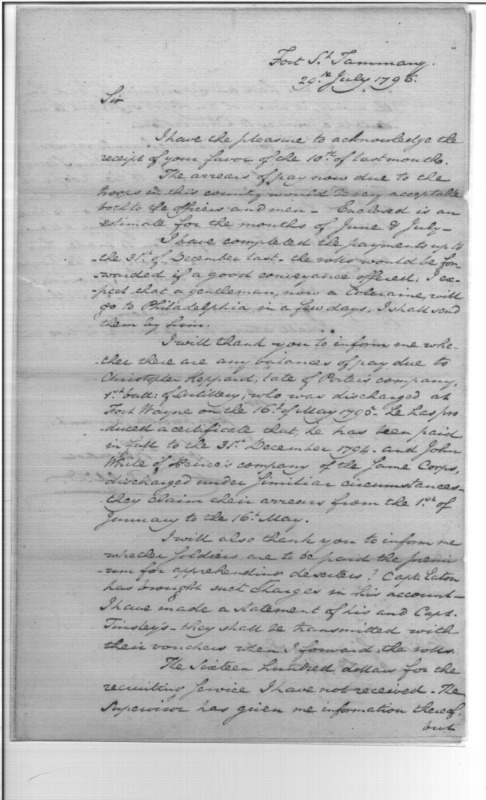 Fort St. Tammany.
29th July 1795.
Sir
I have the pleasure to acknowledge the
receipt of your favor of the 10th of last month.
The arrears of pay now due to the
troops in this country would be very acceptable
both to the officers and men - Enclosed is an
estimate for the months of June & July -
I have completed the payments up to
the 31st of December last. the rolls would be for
-warded if a good conveyance offered; I ex
-pect that a gentleman, now a Colerame, will
go to Philadelphia in a few days, I shall send
them by him.
I will thank you to inform me whe
-ther there are any balances of pay due to
Christopher Keppard, late of Porter's company,
1st batt: of Artillery, who was discharged at
Fort Wayne on the 16th of May 1795. he has pro
duced a certificate that, he has been paid
in full to the 31st December 1794. and John
White of Peirce's company of the same Corps,
discharged under similiar circumstances -
they claim their arrears from the 1st of
January to the 16th May.
I will also thank you to inform me
whether soldiers are to be paid the premi
-um for apprehending deserters? Capt. Eaton
has brought such charges in his account -
I have made a statement of his and Capt.
Tinsley's - they shall be transmitted with
their vouchers when I forward the rolls.
The Sixteen hundred dollars for the
recruiting service I have not received. The
Supervisor has given me infomation thereof.
but